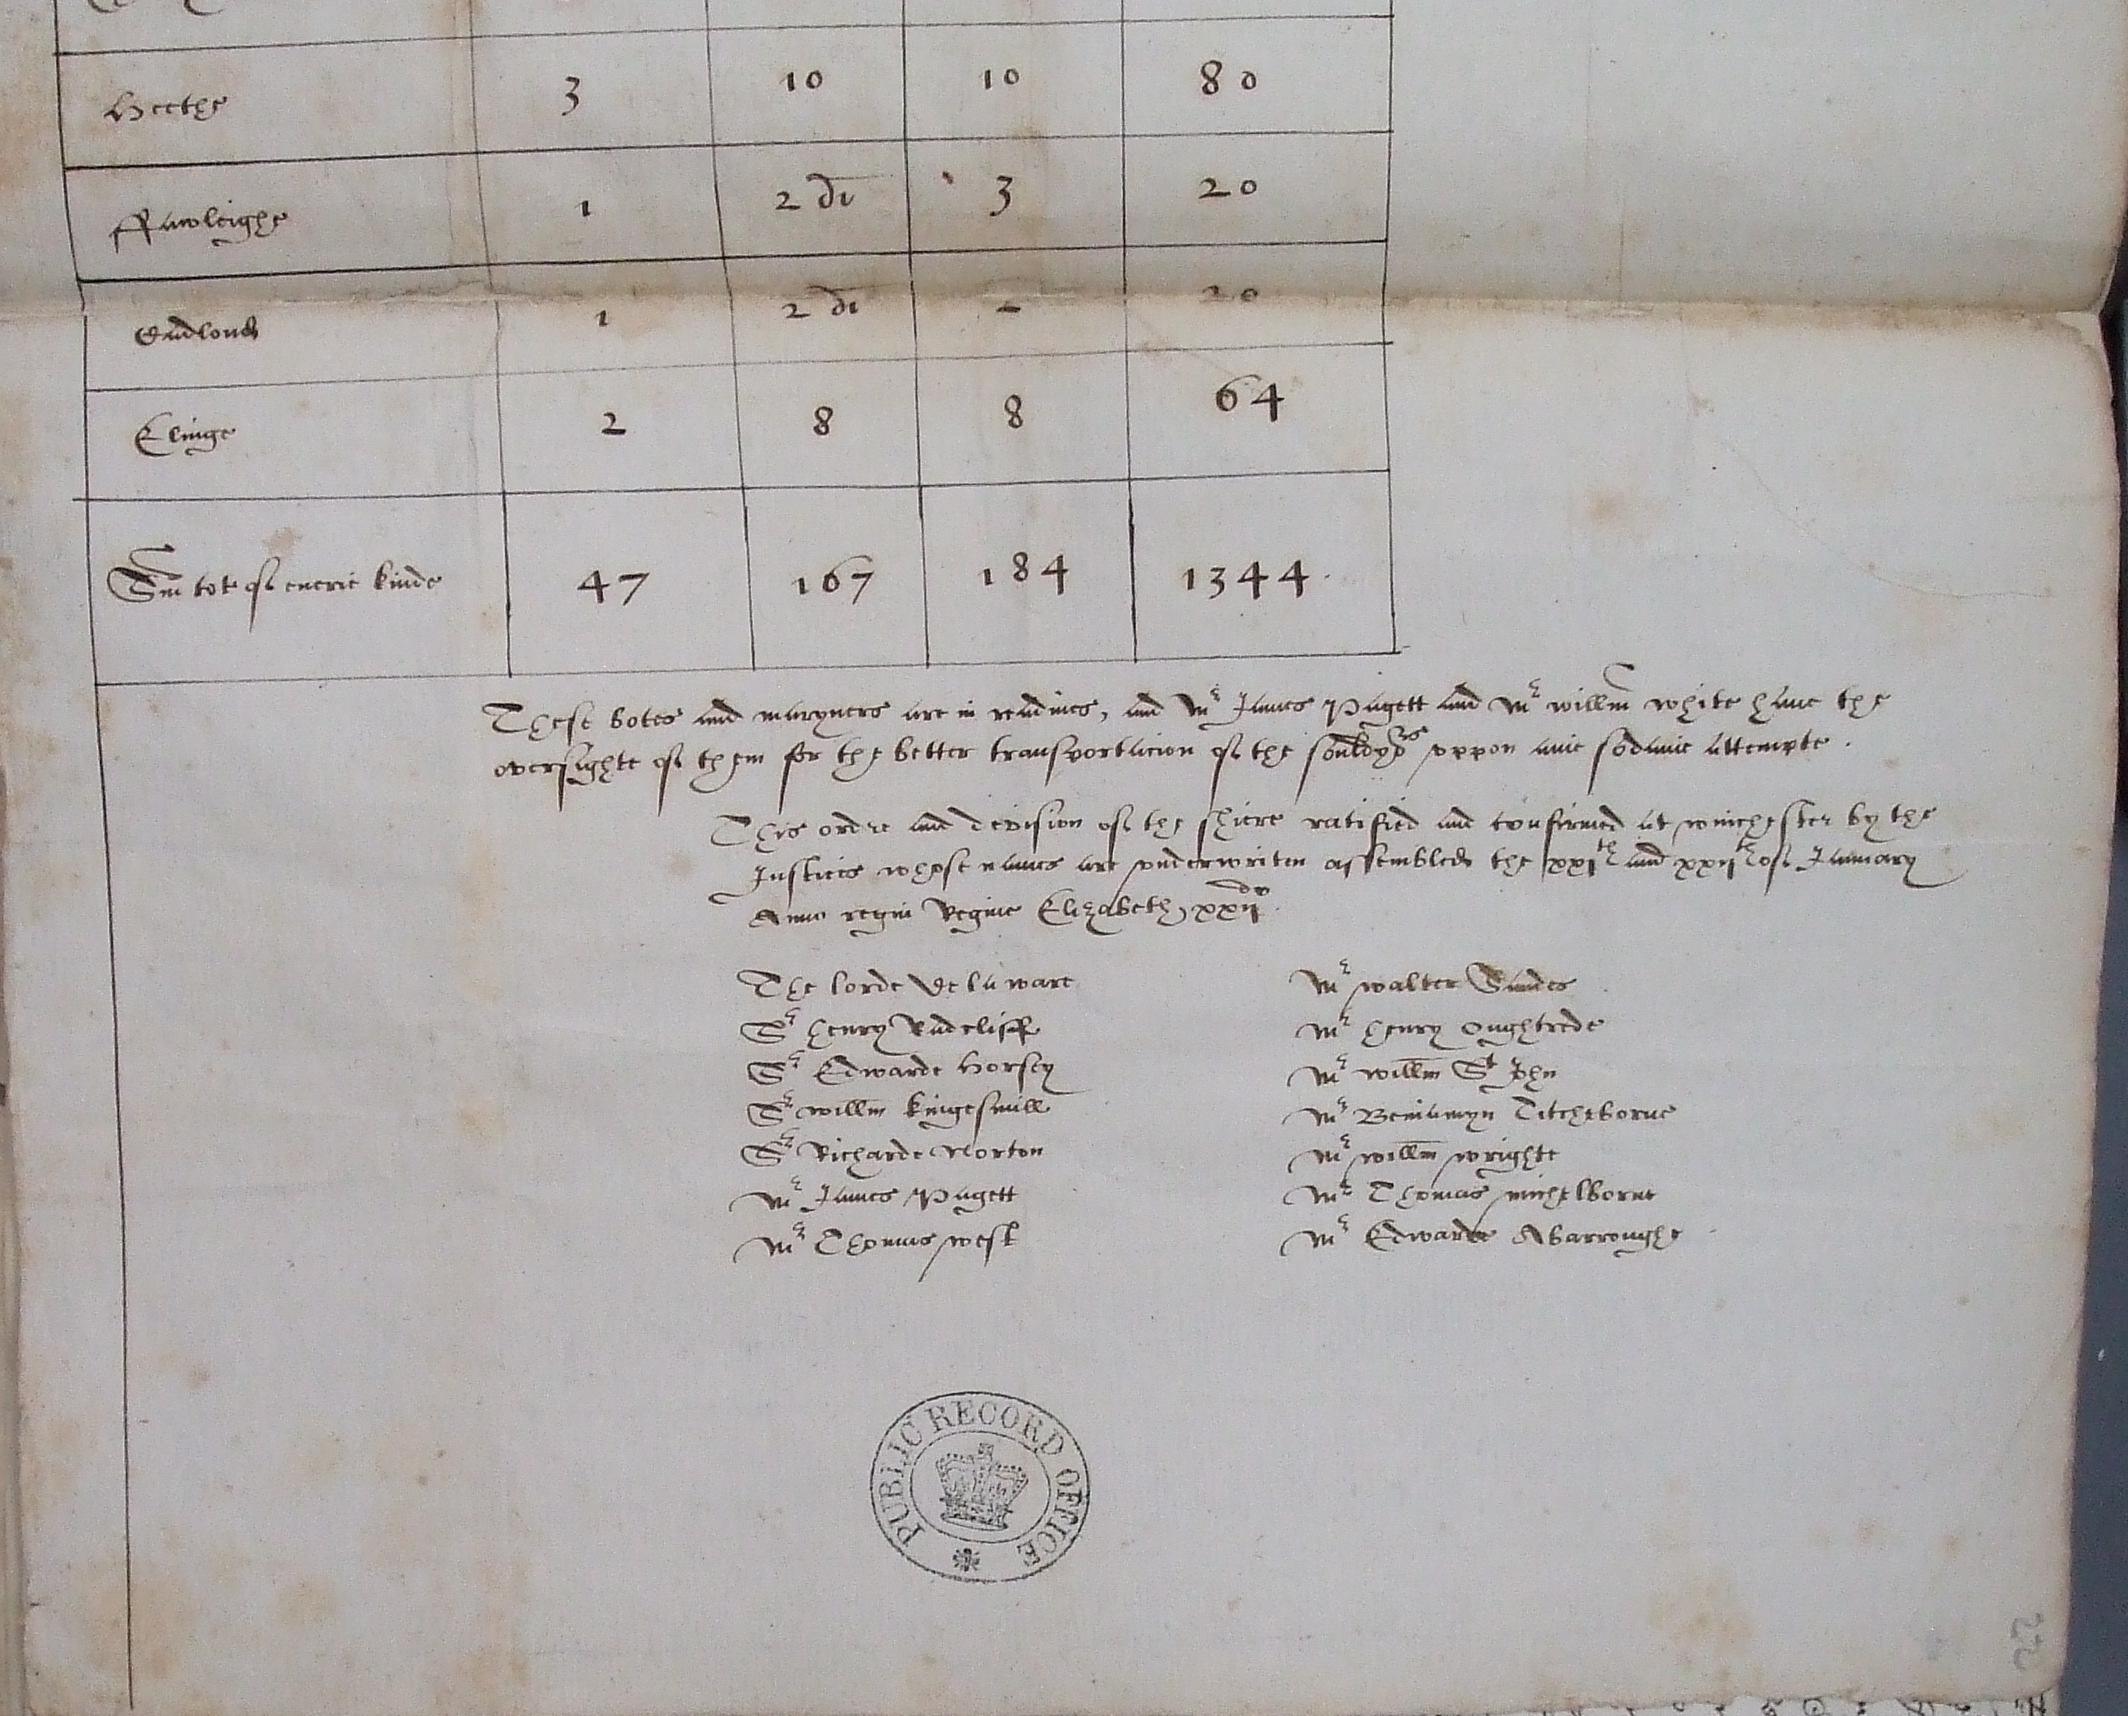 Heethe 3 10 10 80
ffawleighe 1 2 di 3 20
Eadlond 1 2 di 20
Elinge 2 8 8 64
Sm tot of euerie kinde 47 167 184 1344
These botes and maryners are in readines, and Mr James Pagett and Mr Willm White haue the
oversighte of them for the better transportacion of the vppon anie sodanie attempte.
This ordre and devision of the shiere ratified and confirmed at Winchester by the
Justices whose names are vnderwriten assembled the xxjth and xxijth of Januarij
Anno regni Regine Elizabeth, xxijdo
The lorde De la ware
Sr Henry Radcliff
Sr Edwarde Horsey
Sr Willm Kingesmill
Sr Richarde Norton
Mr James Pagett
Mr Thomas West
Mr Walter Sandes
Mr Henry Oughtrede
Mr Willm St John
Mr Beniamyn Titcheborne
Mr Willm Wrighte
Mr Thomas Michelborne
Mr Edwarde Abarroughe
PUBLIC RECORD OFFICE
22